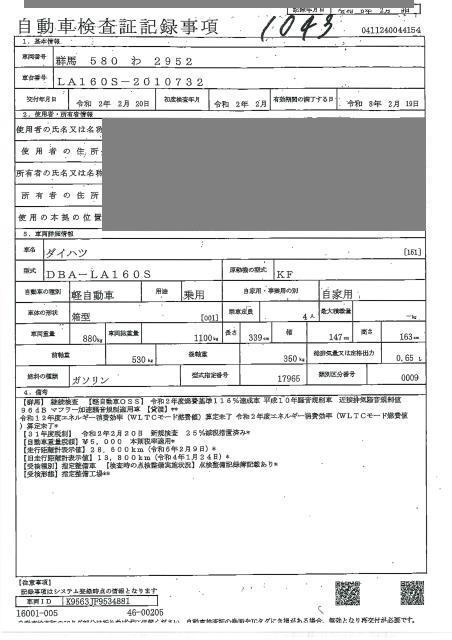 記録年月日 令和 6年 2月 9日
自動車検査証記録事項 1043 0411240044154
1．基本情報
車両番号 群馬 580 わ 2952
車台番号 LA160S-2010732
交付年月日 令和 2年 2月 20日 初度検査年月 令和 2年 2月 有効期間の満了する日 令和 8年 2月 19日
2．使用者・所有者情報
使用者の氏名又は名称
使用者の住所
所有者の氏名又は名称
所有者の住所
使用の本拠の位置
3．車両詳細情報
車名 ダイハツ [161]
型式 DBA-LA160S 原動機の型式 KF
自動車の種別 軽自動車 用途 乗用 自家用・事業用の別 自家用
車体の形状 箱型 [001] 乗車定員 4人 最大積載量 -kg
車両重量 880kg 車両総重量 1100kg 長さ 339cm 幅 147cm 高さ 163cm
前軸重 530kg 後軸重 350kg 総排気量又は定格出力 0.65L
燃料の種類 ガソリン 型式指定番号 17965 類別区分番号 0009
4．備考
【群馬】 継続検査 【軽自動車OSS】 令和2年度燃費基準115%達成車 平成10年騒音規制車 近接排気騒音規制値
96dB マフラー加速騒音規制適用車 【貨渡】**
令和12年度エネルギー消費効率（WLTCモード燃費値）算定未了 令和2年度エネルギー消費効率（WLTCモード燃費値
）算定未了*
【31年度税制】 令和2年2月20日 新規検査 25%減税措置済み*
【自動車重量税額】¥5,000 本則税率適用*
【走行距離計表示値】28,600km（令和6年2月9日）*
【旧走行距離計表示値】13,800km（令和4年1月24日）*
【受検種別】指定整備車 【検査時の点検整備実施状況】点検整備記録簿記載あり*
【受検形態】指定整備工場**
【注意事項】
記録事項はシステム登録時点の情報となります
車両ID K9563JP9534881
16001-005 46-00205